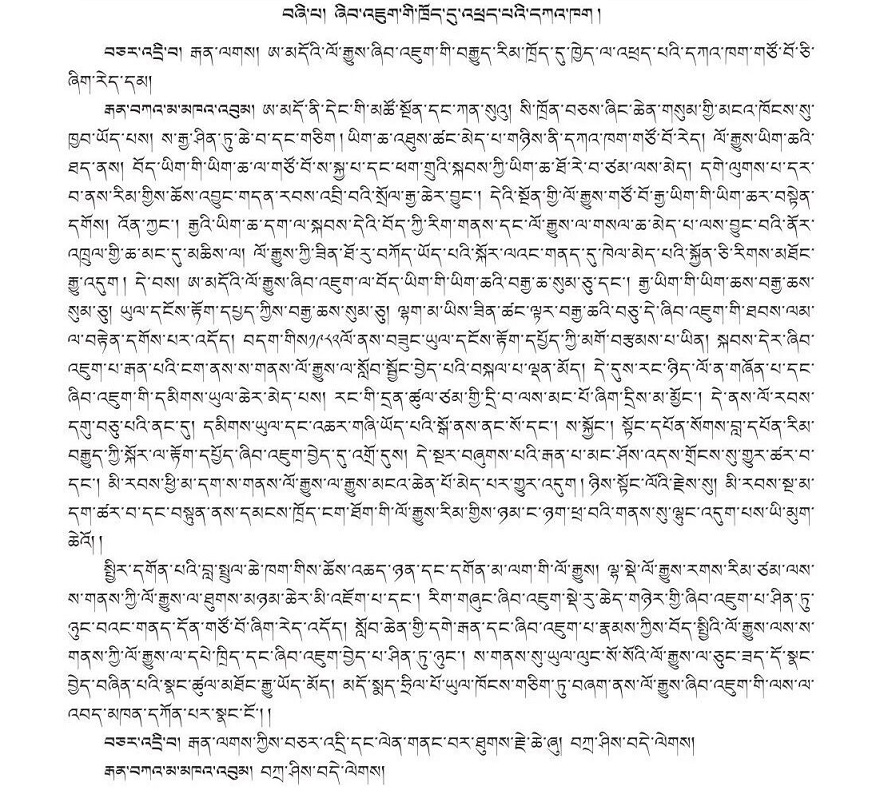 བཞི་པ། ཞིབ་འཇུག་གི་ཁྲོད་དུ་འཕྲད་པའི་དཀའ་ཁག །
བཅར་འདྲི་བ། རྒན་ལགས། ཨ་མདོའི་ལོ་རྒྱུས་ཞིབ་འཇུག་གི་བརྒྱུད་རིམ་ཁྲོད་དུ་ཁྱེད་ལ་འཕྲད་པའི་དཀའ་ཁག་གཙོ་བོ་ཅི་
ཞིག་རེད་དམ།
རྒན་བཀའ་མ་མཁའ་འབུམ། ཨ་མདོ་ནི་དེང་གི་མཚོ་སྔོན་དང་ཀན་སུའུ། སི་ཁྲོན་བཅས་ཞིང་ཆེན་གསུམ་གྱི་མངའ་ཁོངས་སུ་
ཁྱབ་ཡོད་པས། ས་རྒྱ་ཤིན་ཏུ་ཆེ་བ་དང་གཅིག །ཡིག་ཆ་འཐུས་ཚང་མེད་པ་གཉིས་ནི་དཀའ་ཁག་གཙོ་བོ་རེད། ལོ་རྒྱུས་ཡིག་ཆའི་
ཐད་ནས། བོད་ཡིག་གི་ཡིག་ཆ་ལ་གཙོ་བོ་ས་སྐྱ་པ་དང་ཕག་གྲུའི་སྐབས་ཀྱི་ཡིག་ཆ་ཐོ་རེ་བ་ཙམ་ལས་མེད། དགེ་ལུགས་པ་དར་
བ་ནས་རིམ་གྱིས་ཆོས་འབྱུང་གདན་རབས་འབྲི་བའི་སྲོལ་རྒྱ་ཆེར་བྱུང་། དེའི་སྔོན་གྱི་ལོ་རྒྱུས་གཙོ་བོ་རྒྱ་ཡིག་གི་ཡིག་ཆར་བསྟེན་
དགོས། འོན་ཀྱང་། རྒྱའི་ཡིག་ཆ་དག་ལ་སྐབས་དེའི་བོད་ཀྱི་རིག་གནས་དང་ལོ་རྒྱུས་ལ་གསལ་ཆ་མེད་པ་ལས་བྱུང་བའི་ནོར་
འཁྲུལ་གྱི་ཆ་མང་དུ་མཆིས་ལ། ལོ་རྒྱུས་ཀྱི་ཟིན་ཐོ་རུ་བཀོད་ཡོད་པའི་སྐོར་ལའང་གནད་དུ་ཁེལ་མེད་པའི་སྐྱོན་ཅི་རིགས་མཐོང་
རྒྱུ་འདུག །དེ་བས། ཨ་མདོའི་ལོ་རྒྱུས་ཞིབ་འཇུག་ལ་བོད་ཡིག་གི་ཡིག་ཆའི་བརྒྱ་ཆ་སུམ་ཅུ་དང་། རྒྱ་ཡིག་གི་ཡིག་ཆས་བརྒྱ་ཆས་
སུམ་ཅུ། ཡུལ་དངོས་རྟོག་དཔྱད་ཀྱིས་བརྒྱ་ཆས་སུམ་ཅུ། ལྷག་མ་ཡིས་ཟིན་ཚང་ལྟར་བརྒྱ་ཆའི་བཅུ་དེ་ཞིབ་འཇུག་གི་ཐབས་ལམ་
ལ་བརྟེན་དགོས་པར་འདོད། བདག་གིས༡༩༨༢ལོ་ནས་བཟུང་ཡུལ་དངོས་རྟོག་དཔྱོད་ཀྱི་མགོ་བརྩམས་པ་ཡིན། སྐབས་དེར་ཞིབ་
འཇུག་པ་རྒན་པའི་ངག་ནས་ས་གནས་ལོ་རྒྱུས་ལ་སློབ་སྦྱོང་བྱེད་པའི་བསྐལ་པ་ལྡན་མོད། དེ་དུས་རང་ཉིད་ལོ་ན་གཞོན་པ་དང་
ཞིབ་འཇུག་གི་དམིགས་ཡུལ་ཆེར་མེད་པས། རང་གི་དྲན་ཚུལ་ཙམ་གྱི་དྲི་བ་ལས་མང་པོ་ཞིག་དྲིས་མ་མྱོང་། དེ་ནས་ལོ་རབས་
དགུ་བཅུ་པའི་ནང་དུ། དམིགས་ཡུལ་དང་འཆར་གཞི་ཡོད་པའི་སྒོ་ནས་ནང་སོ་དང་། ས་སྐྱོང་། སྟོང་དཔོན་སོགས་བླ་དཔོན་རིམ་
བརྒྱུད་ཀྱི་སྐོར་ལ་རྟོག་དཔྱོད་ཞིབ་འཇུག་བྱེད་དུ་འགྲོ་དུས། དེ་སྔར་བཞུགས་པའི་རྒན་པ་མང་ཤོས་འདས་གྲོངས་སུ་གྱུར་ཚར་བ་
དང་། མི་རབས་ཕྱི་མ་དག་ས་གནས་ལོ་རྒྱུས་ལ་རྒྱུས་མངའ་ཆེན་པོ་མེད་པར་གྱུར་འདུག །ཉིས་སྟོང་ལོའི་རྗེས་སུ། མི་རབས་སྔ་མ་
དག་ཚར་བ་དང་བསྟུན་ནས་དམངས་ཁྲོད་ངག་ཐོག་གི་ལོ་རྒྱུས་རིམ་གྱིས་ཉམ་ང་ཉག་ཕྲ་བའི་གནས་སུ་ལྷུང་འདུག་པས་ཡི་མུག་
ཆེའོ། །
སྤྱིར་དགོན་པའི་བླ་སྤྲུལ་ཆེ་ཁག་གིས་ཆོས་འཆད་ཉན་དང་དགོན་མ་ལག་གི་ལོ་རྒྱུས། ལྷ་སྡེ་ལོ་རྒྱུས་རགས་རིམ་ཙམ་ལས་
ས་གནས་ཀྱི་ལོ་རྒྱུས་ལ་ཐུགས་མཉམ་ཆེར་མི་འཇོག་པ་དང་། རིག་གཞུང་ཞིབ་འཇུག་སྡེ་རུ་ཆེད་གཉེར་གྱི་ཞིབ་འཇུག་པ་ཤིན་ཏུ་
ཉུང་བའང་གནད་དོན་གཙོ་བོ་ཞིག་རེད་འདོད། སློབ་ཆེན་གྱི་དགེ་རྒན་དང་ཞིབ་འཇུག་པ་རྣམས་ཀྱིས་བོད་སྤྱིའི་ལོ་རྒྱུས་ལས་ས་
གནས་ཀྱི་ལོ་རྒྱུས་ལ་དཔེ་ཁྲིད་དང་ཞིབ་འཇུག་བྱེད་པ་ཤིན་ཏུ་ཉུང་། ས་གནས་སུ་ཡུལ་ལུང་སོ་སོའི་ལོ་རྒྱུས་ལ་ཅུང་ཟད་དོ་སྣང་
བྱེད་བཞིན་པའི་སྣང་ཚུལ་མཐོང་རྒྱུ་ཡོད་མོད། མདོ་སྨད་ཧྲིལ་པོ་ཡུལ་ཁོངས་གཅིག་ཏུ་བཞག་ནས་ལོ་རྒྱུས་ཞིབ་འཇུག་གི་ལས་ལ་
འབད་མཁན་དཀོན་པར་སྣང་ངོ་། །
བཅར་འདྲི་བ། རྒན་ལགས་ཀྱིས་བཅར་འདྲི་དང་ལེན་གནང་བར་ཐུགས་རྗེ་ཆེ་ཞུ། བཀྲ་ཤིས་བདེ་ལེགས།
རྒན་བཀའ་མ་མཁའ་འབུམ། བཀྲ་ཤིས་བདེ་ལེགས།